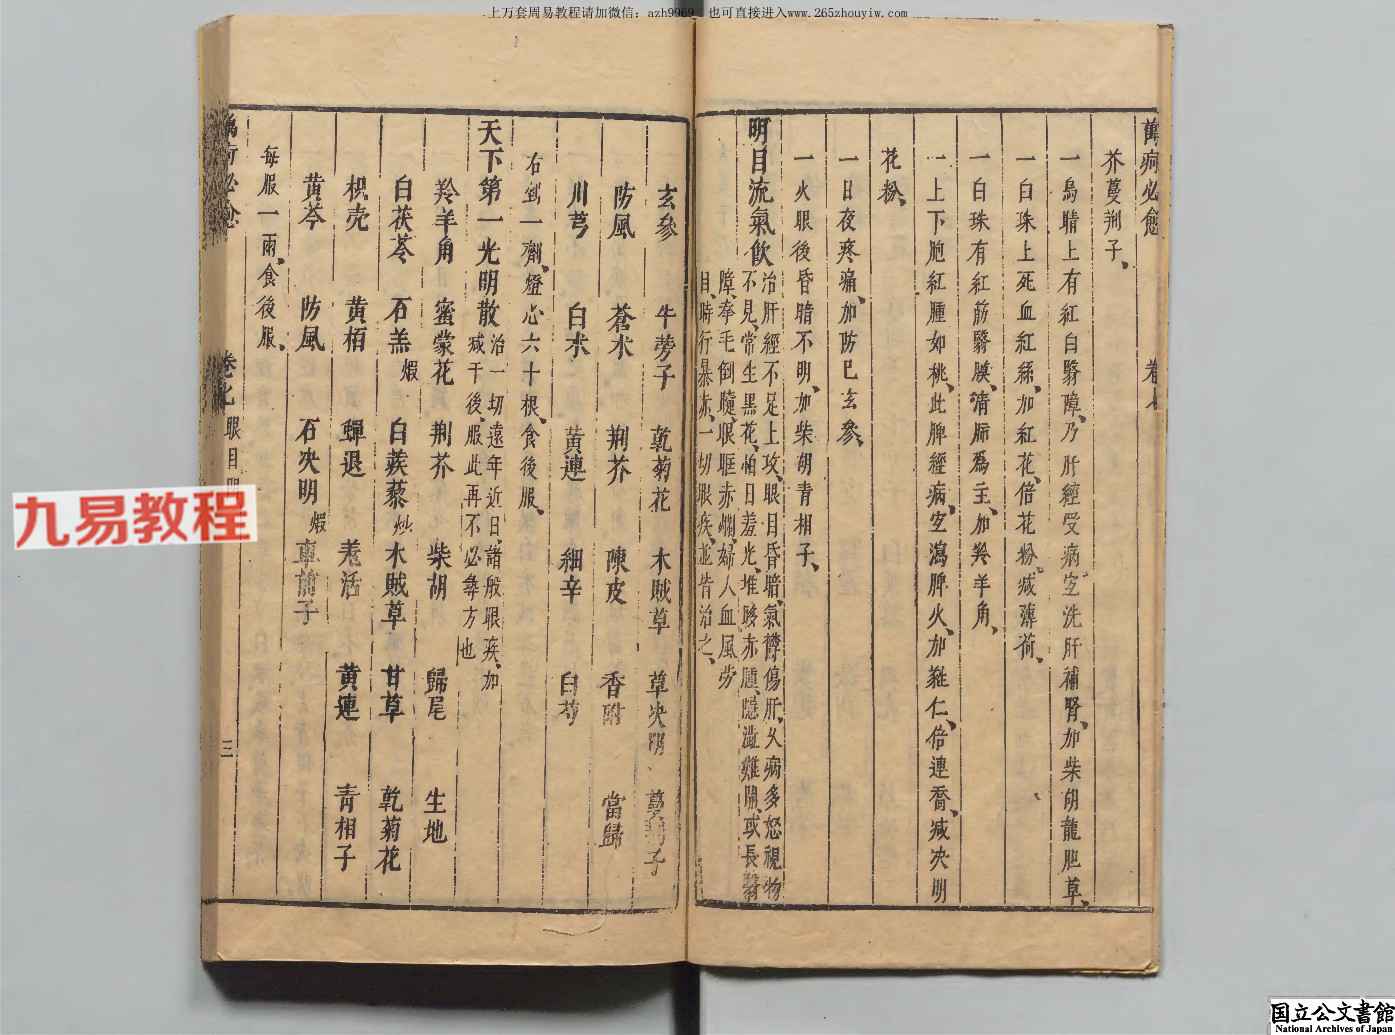 上万套周易教程请加微信：azh9969 也可直接进入www.265zhouyiw.com
萬病必愈 卷七
芥蔓荆子、
一烏睛上有紅白翳障、乃肝經受病宜洗肝補腎、加柴胡龍胆草、
一白珠上死血紅絲、加紅花、倍花粉、减薄荷、
一白珠有紅筋翳膜、清肺爲主、加羚羊角、
一上下胞紅腫如桃、此脾經病宜瀉脾火、加蕤仁、倍連喬、减决明
花粉、
一日夜疼痛、加防巳玄參、
一火眼後昏暗不明、加柴胡青相子、
明目流氣飲 治肝經不足上攻、眼目昏暗、氣欝傷肝、久病多怒視物
不見、常生黑花、怕日羞光、堆眵赤腫、隱澁難開、或長翳
障、拳毛倒睫、眼眶赤爛、婦人血風勞
目、時行暴赤、一切眼疾、並皆治之、
玄參 牛蒡子 乾菊花 木賊草 草决明、蔓荆子
防風 蒼术 荆芥 陳皮 香附 當歸
川芎 白术 黄連 細辛 白芍
右剉一劑、燈心六十根、食後服、
天下第一光明散 治一切遠年近日、諸般眼疾、加
减于後、服此再不必尋方也
羚羊角 蜜蒙花 荆芥 柴胡 歸尾 生地
白茯苓 石羔煆 白蒺藜炒 木賊草 甘草 乾菊花
枳壳 黄栢 蟬退 羗活 黄連 青相子
黄芩 防風 石决明煆 車前子
每服一兩、食後服、
卷七 眼目 三
九易教程
国立公文書館
National Archives of Japan